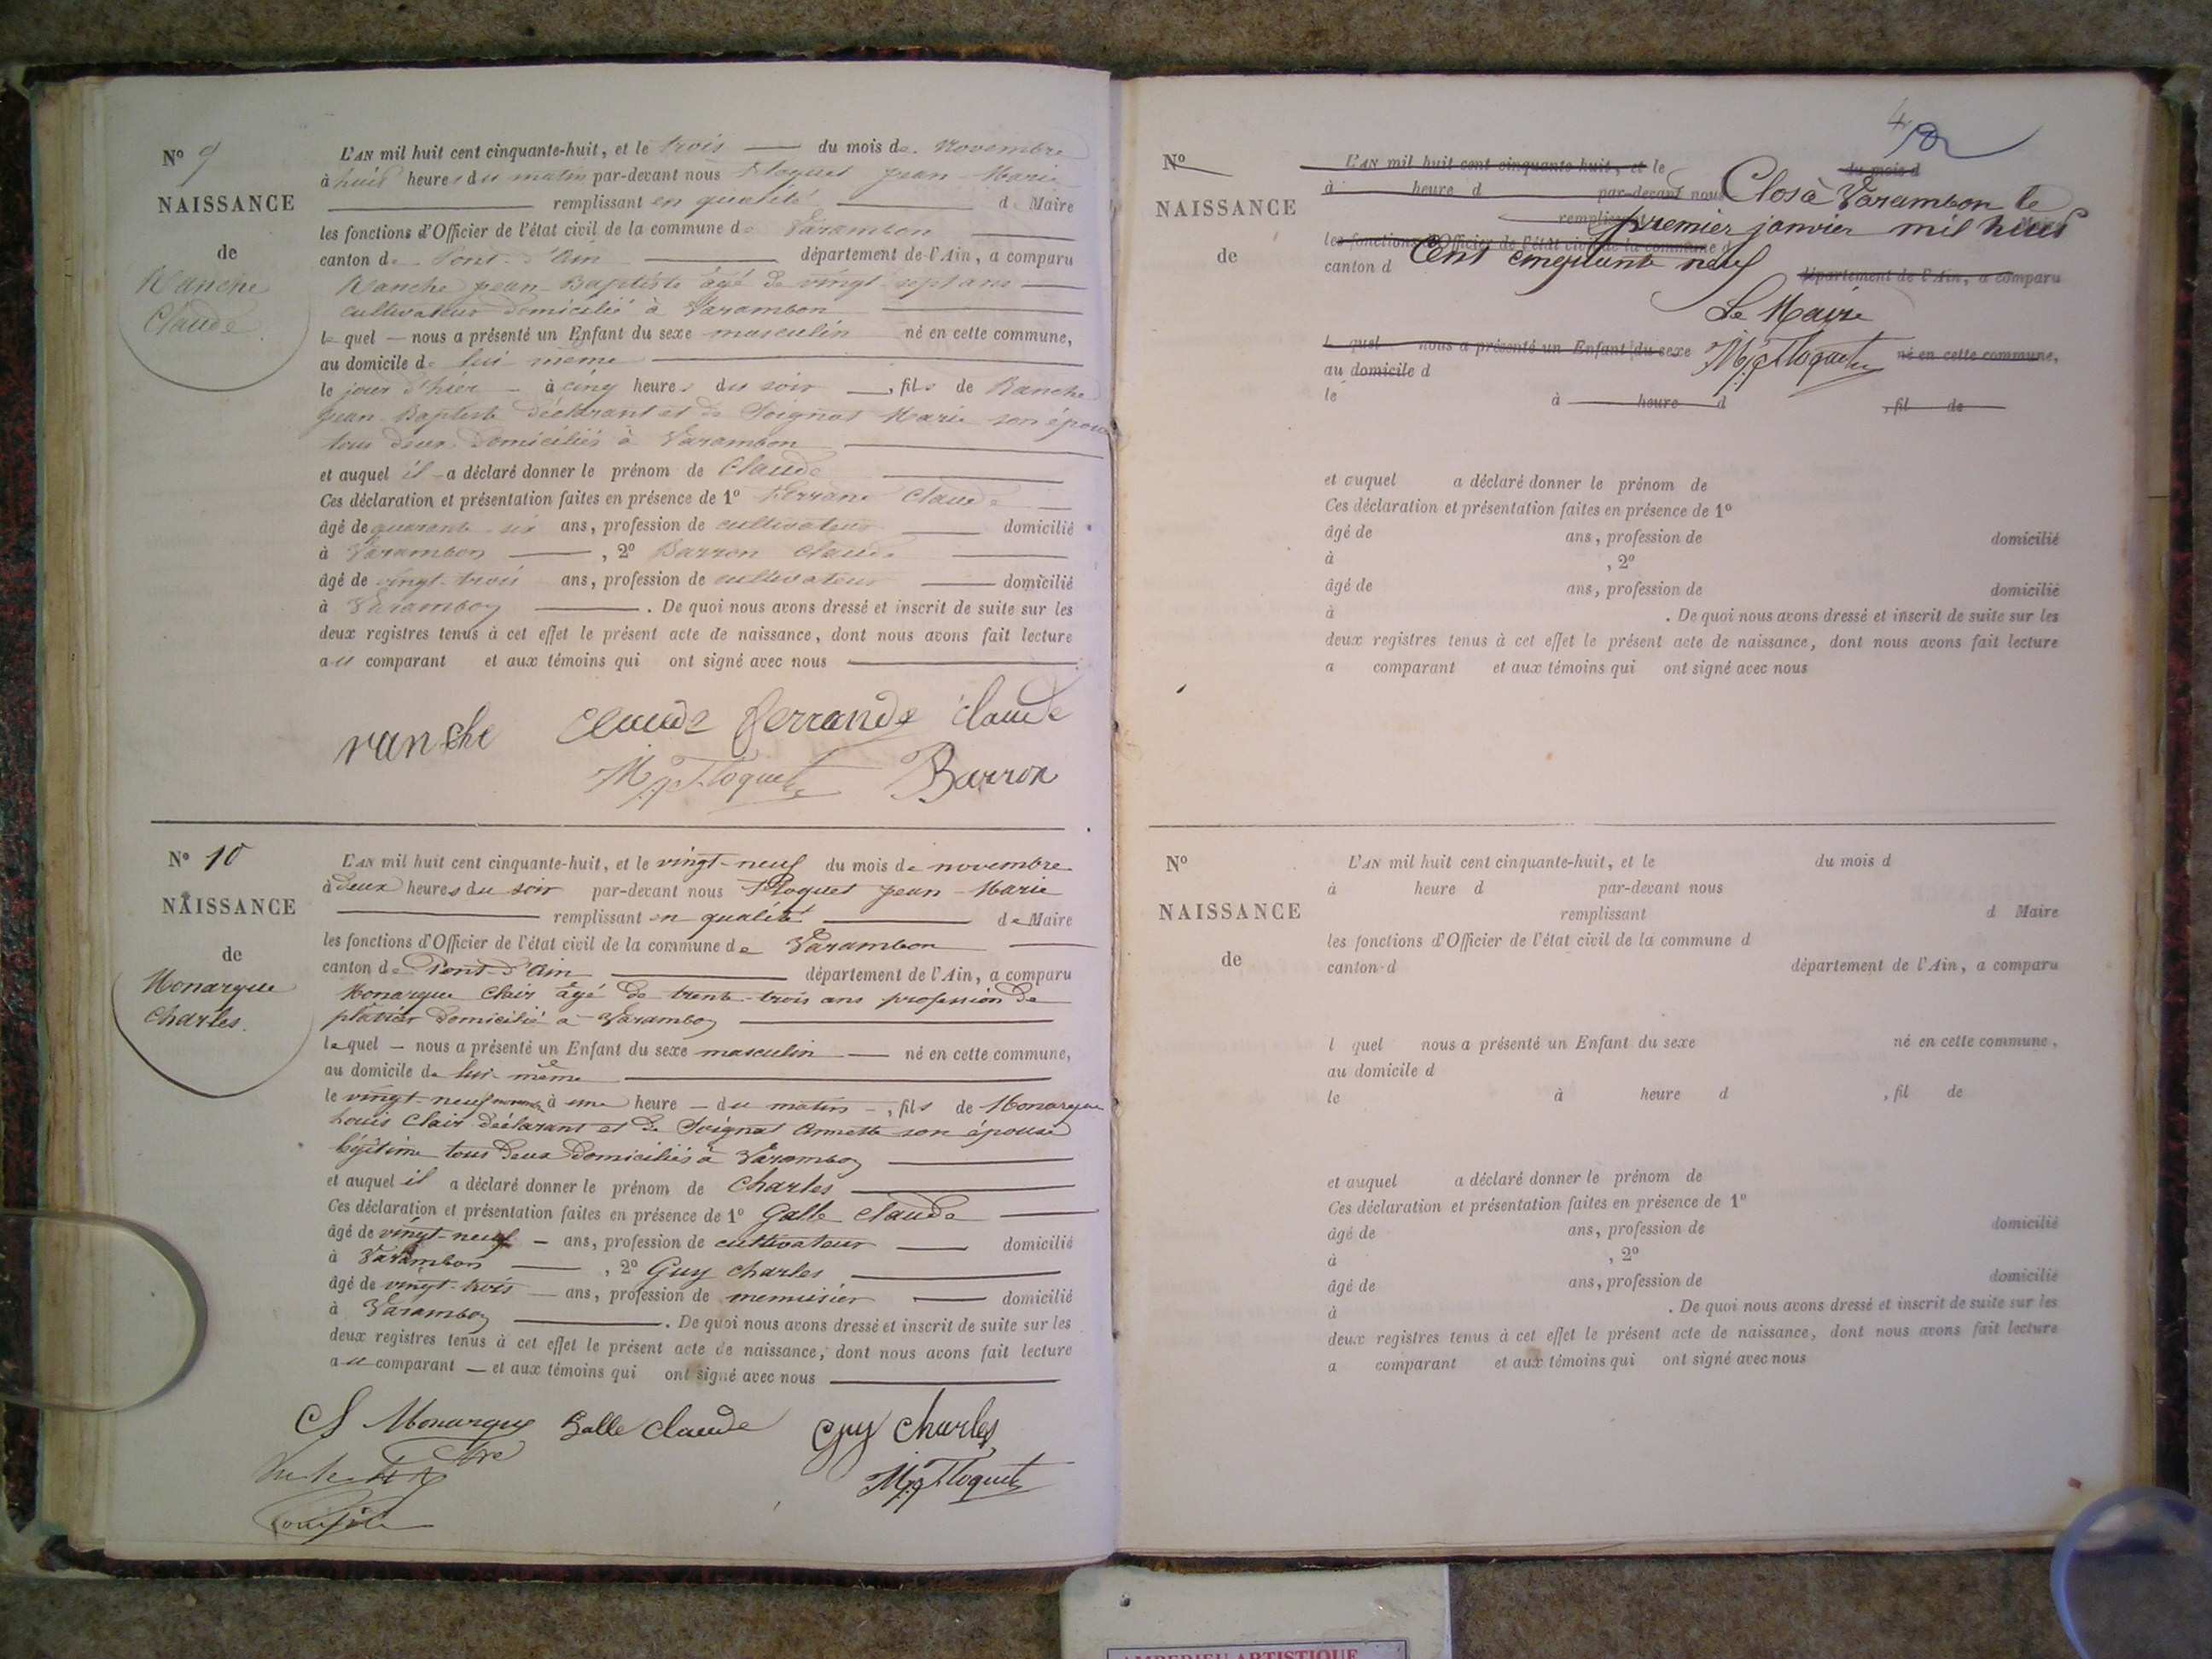 N° 9
NAISSANCE
de
Ranche
Claude
L'AN mil huit cent cinquante-huit, et le trois du mois de Novembre
à huit heures du matin par-devant nous Floquet Jean-Marie
remplissant en qualité de Maire
les fonctions d'Officier de l'état civil de la commune de Varambon
canton de Pont-d'Ain département de l'Ain, a comparu
Ranche Jean-Baptiste âgé de vingt-sept ans
cultivateur domicilié à Varambon
lequel nous a présenté un Enfant du sexe masculin né en cette commune,
au domicile de lui même
le jour d'hier à cinq heures du soir, fils de Ranche
Jean-Baptiste déclarant et de Soignat Marie son épouse
tous deux domiciliés à Varambon
et auquel il a déclaré donner le prénom de Claude
Ces déclaration et présentation faites en présence de 1° Ferrand Claude
âgé de quarante-six ans, profession de cultivateur domicilié
à Varambon, 2° Barron Claude
âgé de vingt-trois ans, profession de cultivateur domicilié
à Varambon. De quoi nous avons dressé et inscrit de suite sur les
deux registres tenus à cet effet le présent acte de naissance, dont nous avons fait lecture
au comparant et aux témoins qui ont signé avec nous
ranche Claude ferrande Claude
M J Floquet Barron
N° 10
NAISSANCE
de
Monarque
Charles.
L'AN mil huit cent cinquante-huit, et le vingt-neuf du mois de novembre
à deux heures du soir par-devant nous Floquet Jean-Marie
remplissant en qualité de Maire
les fonctions d'Officier de l'état civil de la commune de Varambon
canton de Pont-d'Ain département de l'Ain, a comparu
Monarque Clair âgé de trente-trois ans profession de
plâtrier domicilié à Varambon
lequel nous a présenté un Enfant du sexe masculin né en cette commune,
au domicile de lui-même
le vingt-neuf à une heure du matin, fils de Monarque
Louis Clair déclarant et de Soignat Annette son épouse
légitime tous deux domiciliés à Varambon
et auquel il a déclaré donner le prénom de Charles
Ces déclaration et présentation faites en présence de 1° Galle Claude
âgé de vingt-neuf ans, profession de cultivateur domicilié
à Varambon, 2° Guy Charles
âgé de vingt-trois ans, profession de menuisier domicilié
à Varambon. De quoi nous avons dressé et inscrit de suite sur les
deux registres tenus à cet effet le présent acte de naissance, dont nous avons fait lecture
au comparant et aux témoins qui ont signé avec nous
Monarque Galle Claude Guy Charles
M J Floquet
N°
NAISSANCE
de
L'AN mil huit cent cinquante-huit, et le du mois d
à heure d par-devant nous
Clos à Varambon le
remplissant
premier janvier mil huit
les fonctions d'Officier de l'état civil de la commune d
Cent cinquante neuf
canton d département de l'Ain, a comparu
Le Maire
l quel nous a présenté un Enfant du sexe né en cette commune,
M J Floquet
au domicile d
le à heure d, fil de
et auquel a déclaré donner le prénom de
Ces déclaration et présentation faites en présence de 1°
âgé de ans, profession de domicilié
à , 2°
âgé de ans, profession de domicilié
à . De quoi nous avons dressé et inscrit de suite sur les
deux registres tenus à cet effet le présent acte de naissance, dont nous avons fait lecture
a comparant et aux témoins qui ont signé avec nous
N°
NAISSANCE
de
L'AN mil huit cent cinquante-huit, et le du mois d
à heure d par-devant nous
remplissant d Maire
les fonctions d'Officier de l'état civil de la commune d
canton d département de l'Ain, a comparu
l quel nous a présenté un Enfant du sexe né en cette commune,
au domicile d
le à heure d , fil de
et auquel a déclaré donner le prénom de
Ces déclaration et présentation faites en présence de 1°
âgé de ans, profession de domicilié
à , 2°
âgé de ans, profession de domicilié
à . De quoi nous avons dressé et inscrit de suite sur les
deux registres tenus à cet effet le présent acte de naissance, dont nous avons fait lecture
a comparant et aux témoins qui ont signé avec nous
ARTISTIQUE